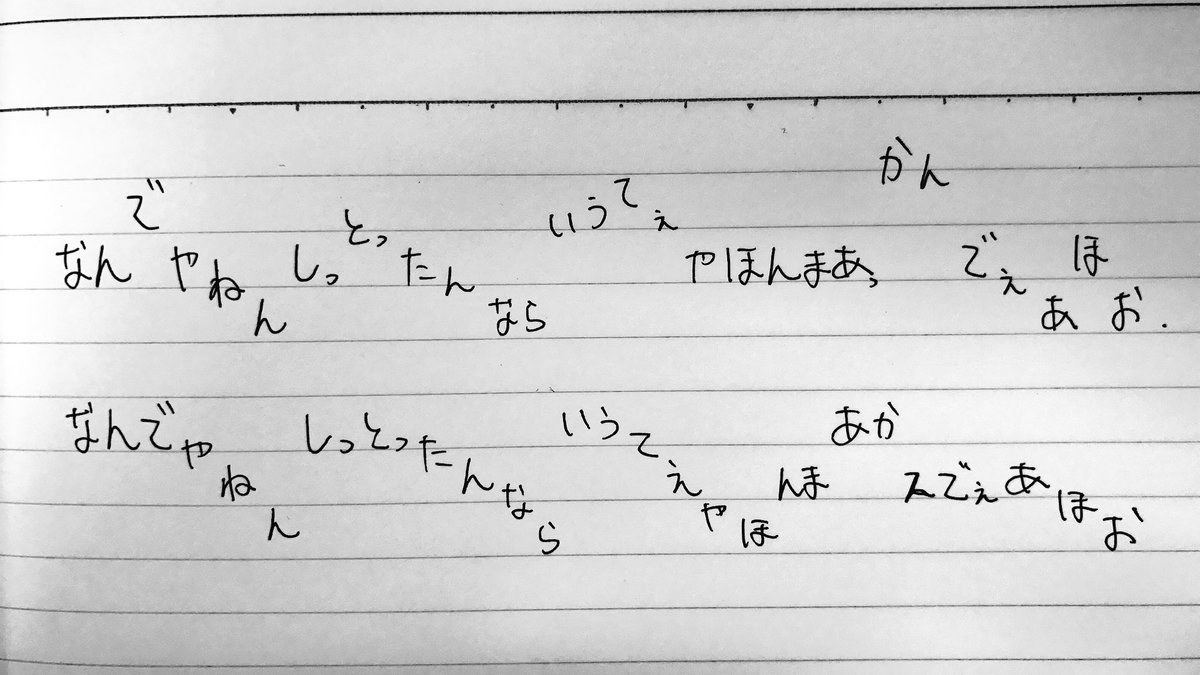 なんでやねん しっとったんなら いうてぇやほんまあ、かんでぇあほお.
なんでやねん しっとったんなら いうてぇやほんま あかんでぇあほお